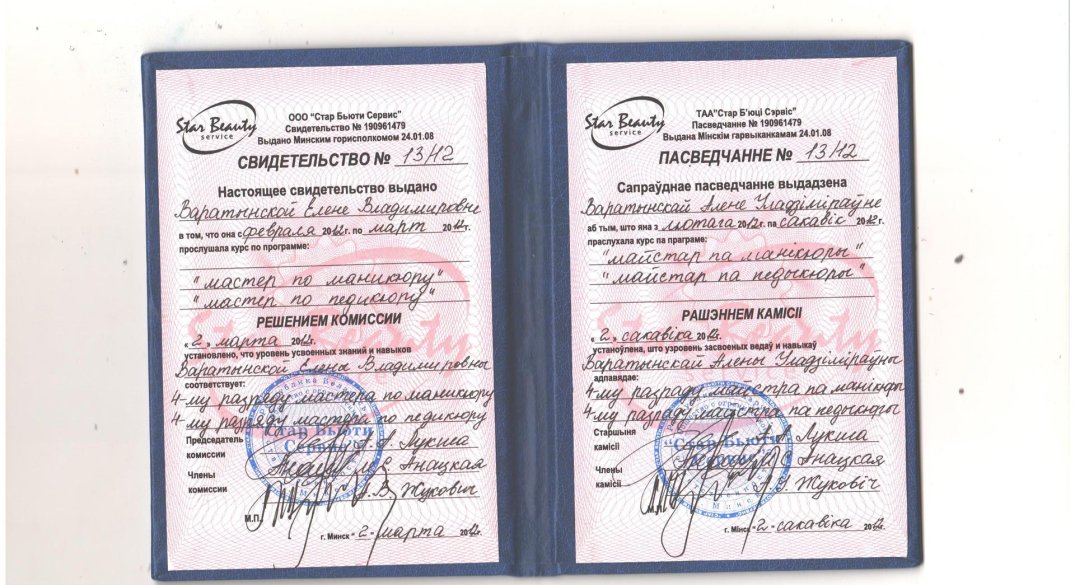 Star Beauty
service
ООО "Стар Бьюти Сервис"
Свидетельство № 190961479
Выдано Минским горисполкомом 24.01.08
СВИДЕТЕЛЬСТВО № 13Н2
Настоящее свидетельство выдано
Варатынской Елене Владимировне
в том, что она с февраля 2012г. по март 2012г.
прослушала курс по программе:
"мастер по маникюру"
"мастер по педикюру"
РЕШЕНИЕМ КОМИССИИ
«2» марта 2012г.
установлено, что уровень усвоенных знаний и навыков
Варатынской Елены Владимировны
соответствует:
4-му разряду мастера по маникюру
4-му разряду мастера по педикюру
Председатель
комиссии
Лукша
Члены
комиссии
Анацкая
А.В. Жукович
М.П.
г. Минск -2- марта 2012г.
Стар Бьюти
Сервис
Star Beauty
service
ТАА"Стар Б'юці Сэрвіс"
Пасведчанне № 190961479
Выдана Мінскім гарвыканкамам 24.01.08
ПАСВЕДЧАННЕ № 13Н2
Сапраўднае пасведчанне выдадзена
Варатынскай Алене Уладзіміраўне
аб тым, што яна з лютага 2012г. па сакавік 2012г.
праслухала курс па праграме:
"майстар па манікюры"
"майстар па педыкюры"
РАШЭННЕМ КАМІСІІ
«2» сакавіка 2012г.
устаноўлена, што узровень засвоеных ведаў и навыкаў
Варатынскай Алены Уладзіміраўны
адпавядае:
4-му разраду майстра па манікюры
4-му разраду майстра па педыкюры
Старшыня
камісіі
Лукша
Члены
камісіі
Анацкая
Жуковіч
М.П.
г. Мінск -2- сакавіка 2012г.
"Стар Бьюти